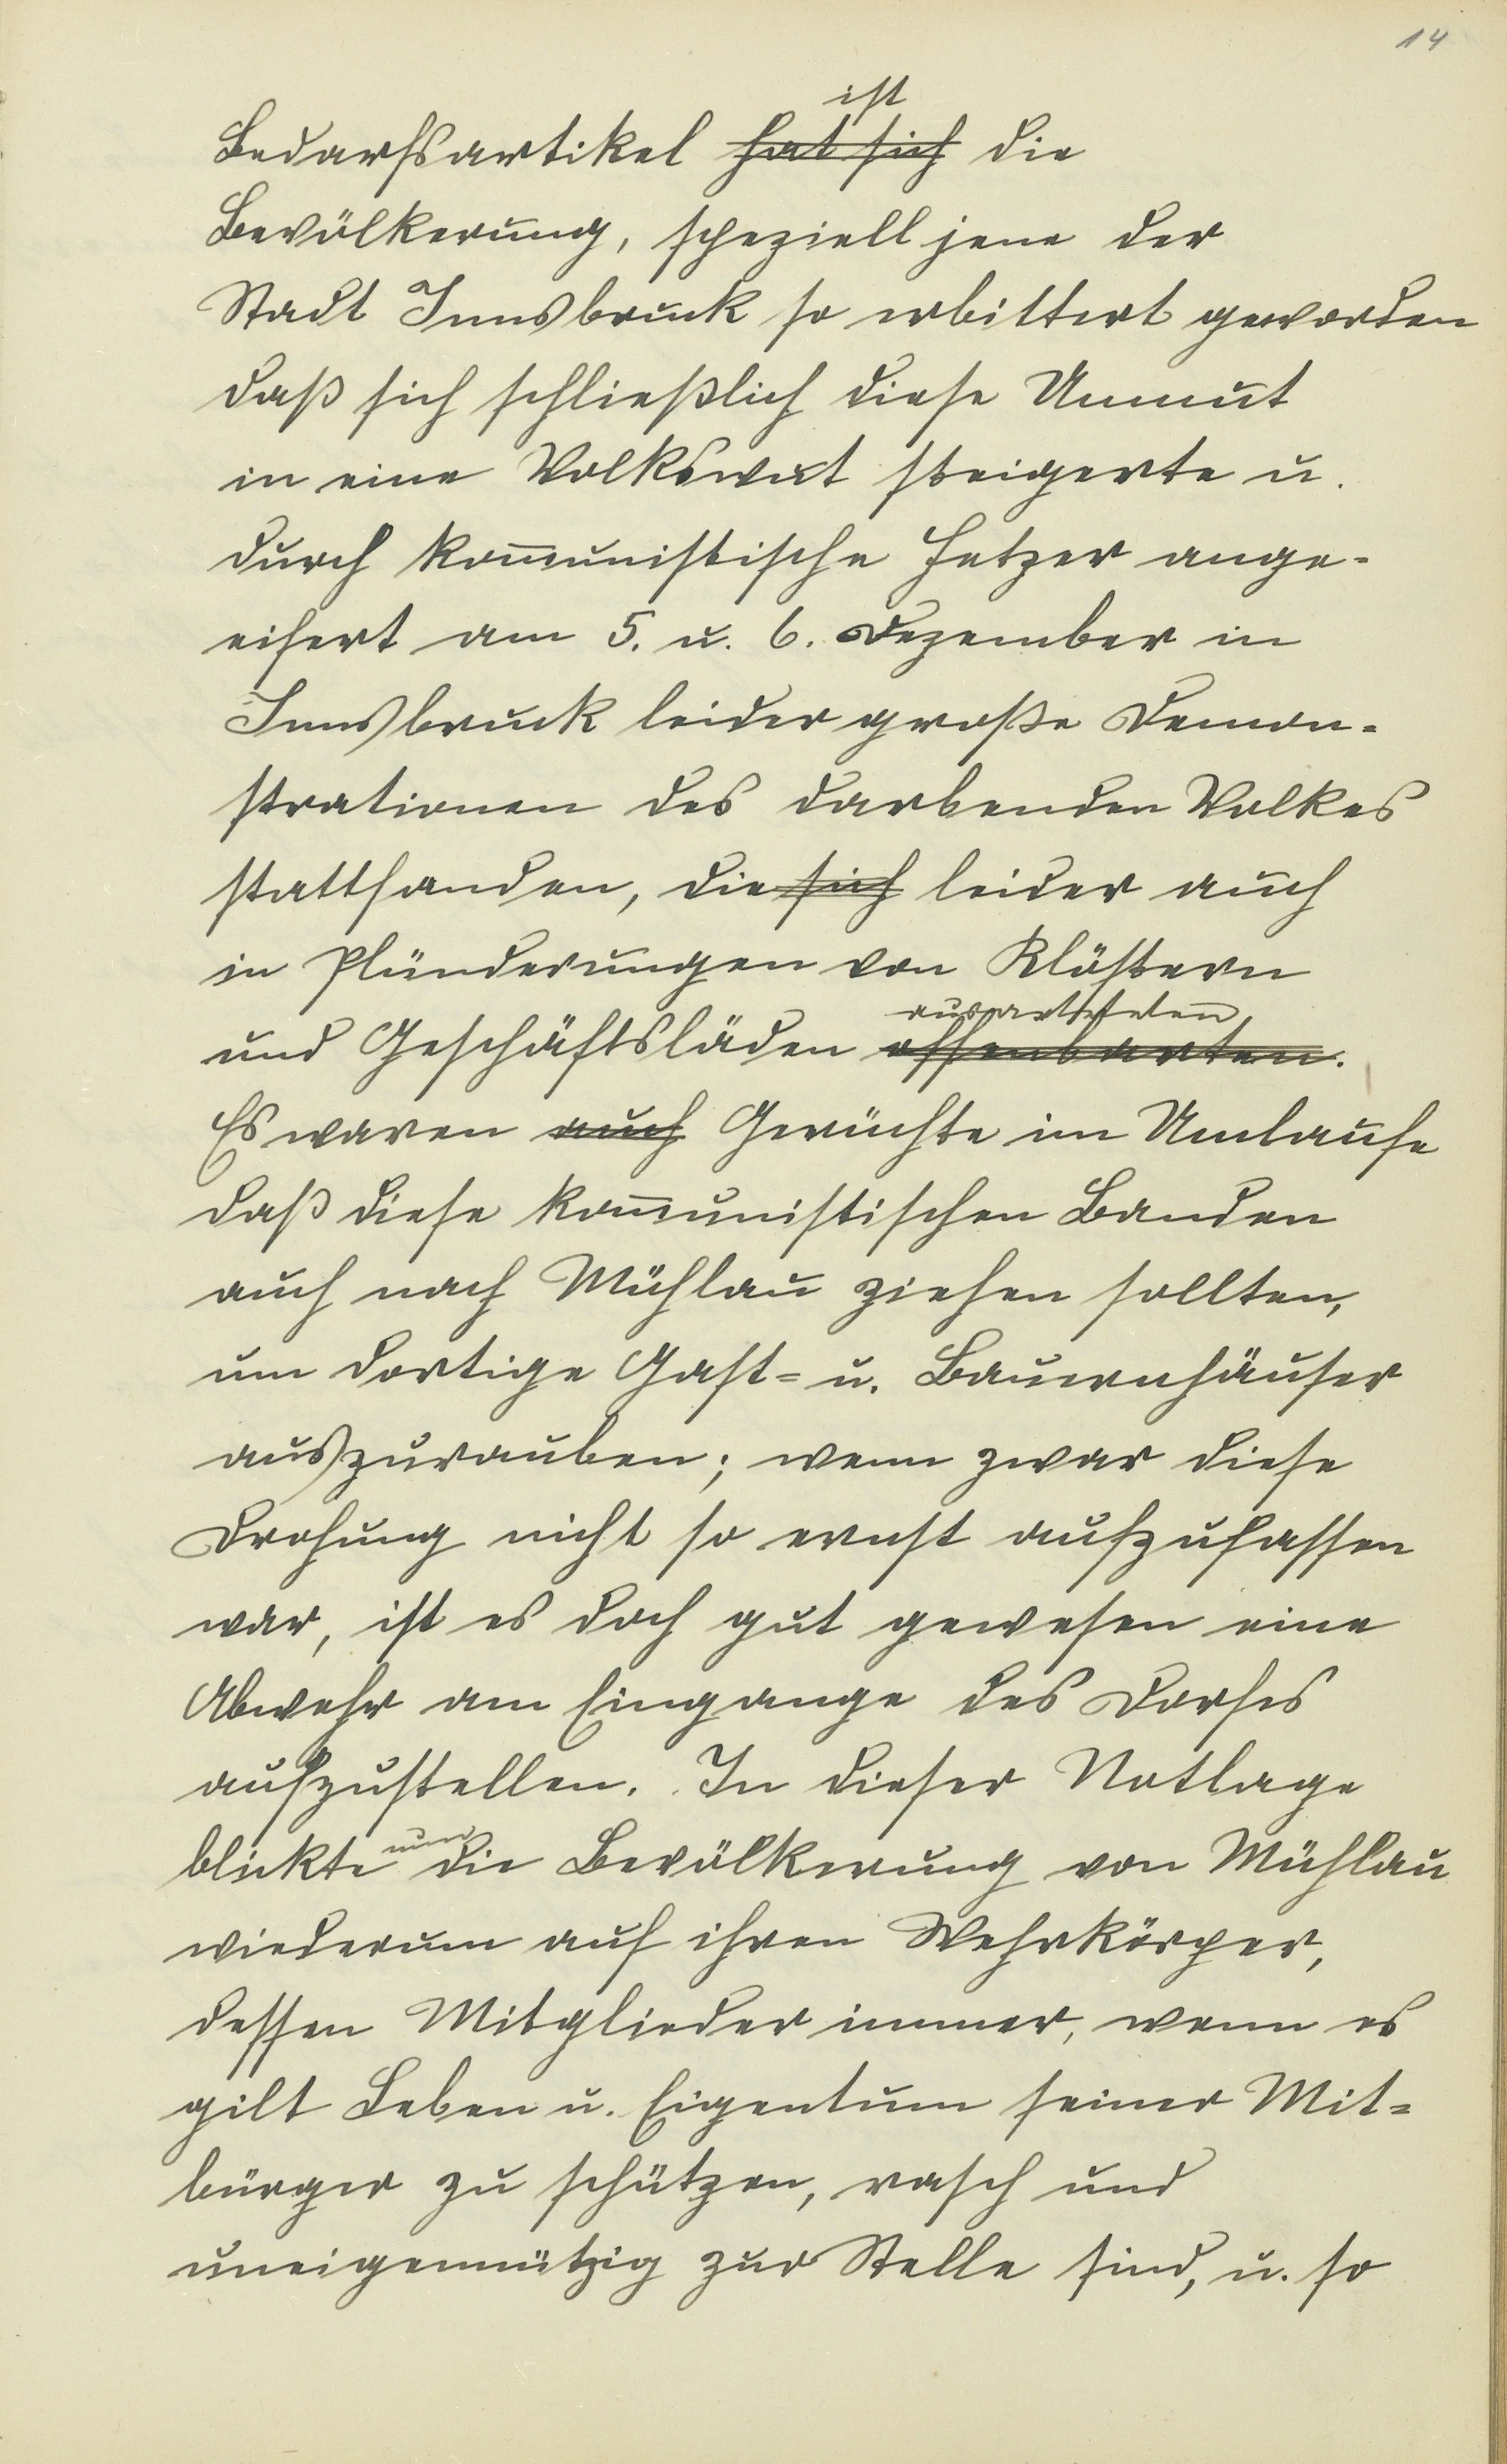 14
ist
Bedarfsartikel hat sich die
Bevölkerung, speziell jene der
Stadt Innsbruck so erbittert geworden
daß sich schließlich diese Unmut
in eine Volkswut steigerte u.
durch kom̄unistische Hetzer ange-
eifert am 5. u. 6. Dezember in
Innsbruck leider große Demon-
strationen des darbenden Volkes
stattfanden, die sich leider auch
in Plünderungen von Klöstern
ausarteten
und Geschäftsläden offenbarten.
Es waren auch Gerüchte im Umlaufe
daß diese kom̄unistischen Banden
auch nach Mühlau ziehen sollten,
um dortige Gast- u. Bauernhäuser
auszurauben; wenn zwar diese
Drohung nicht so ernst aufzufassen
war, ist es doch gut gewesen eine
Abwehr am Eingange des Dorfes
aufzustellen. In dieser Notlage
nun
blickte die Bevölkerung von Mühlau
wiederum auf ihren Wehrkörper,
dessen Mitglieder immer, wenn es
gilt Leben u. Eigentum seiner Mit-
bürger zu schützen, rasch und
uneigennützig zur Stelle sind, u. so